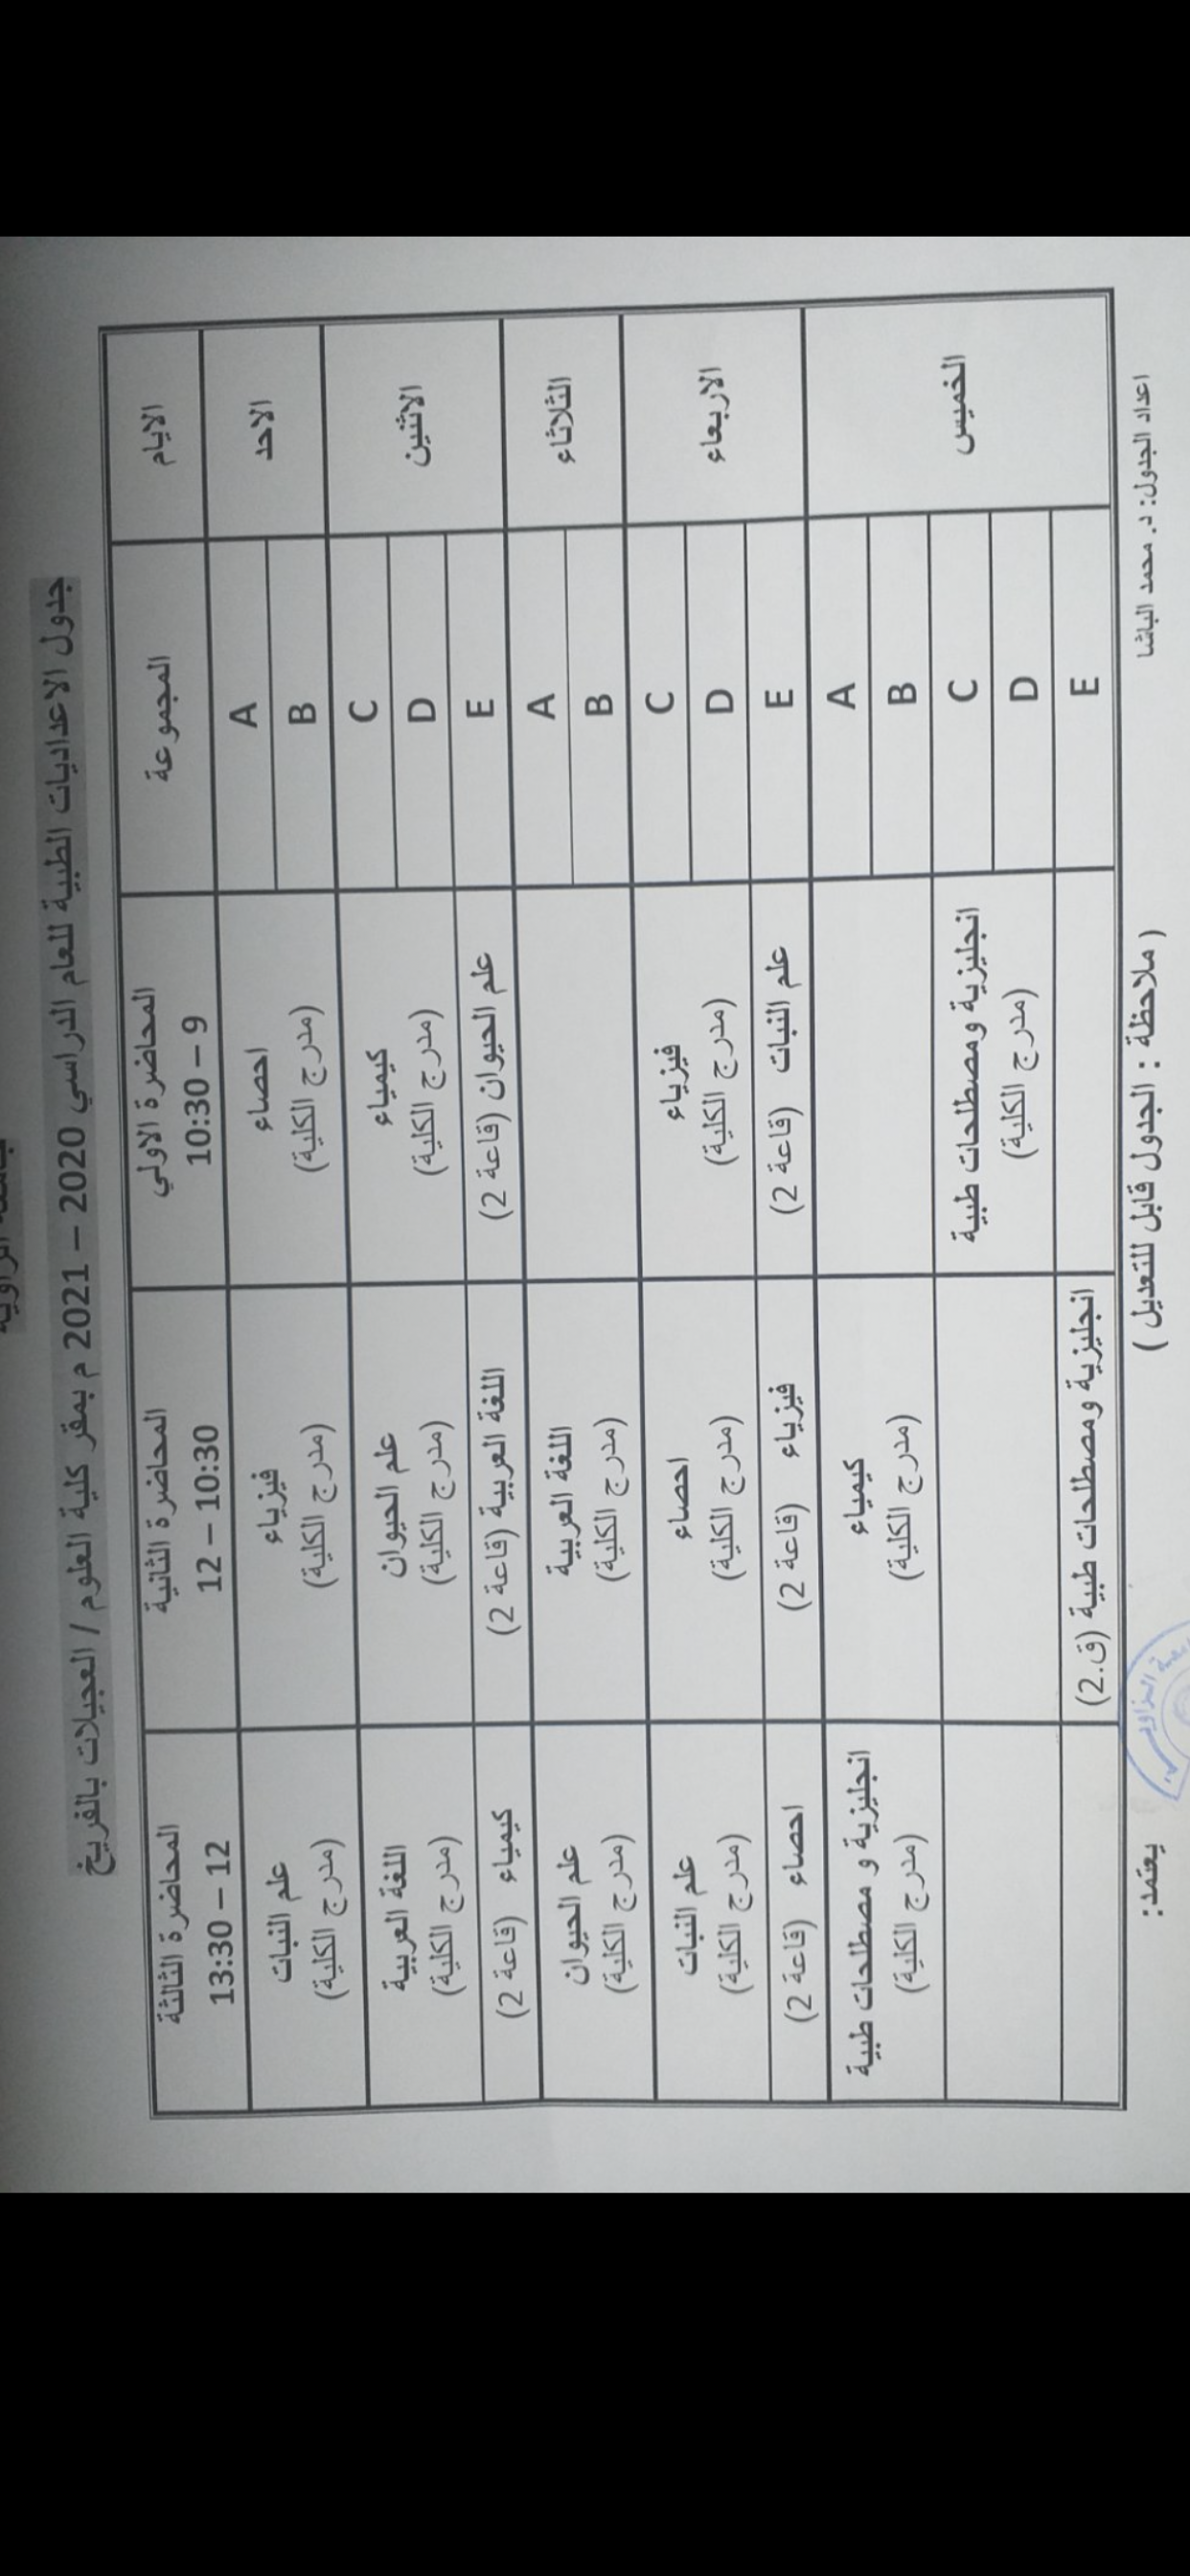 جدول الاعداديات الطبية للعام الدراسي 2020 – 2021 م بمقر كلية العلوم / العجيلات بالفريخ
الايام
المجموعة
المحاضرة الاولي
9 – 10:30
المحاضرة الثانية
10:30 – 12
المحاضرة الثالثة
12 – 13:30
الاحد
A
B
احصاء
(مدرج الكلية)
فيزياء
(مدرج الكلية)
علم النبات
(مدرج الكلية)
الاثنين
C
D
كيمياء
(مدرج الكلية)
علم الحيوان
(مدرج الكلية)
اللغة العربية
(مدرج الكلية)
E
علم الحيوان (قاعة 2)
اللغة العربية (قاعة 2)
كيمياء (قاعة 2)
الثلاثاء
A
B
اللغة العربية
(مدرج الكلية)
علم الحيوان
(مدرج الكلية)
الاربعاء
C
D
فيزياء
(مدرج الكلية)
احصاء
(مدرج الكلية)
علم النبات
(مدرج الكلية)
E
علم النبات (قاعة 2)
فيزياء (قاعة 2)
احصاء (قاعة 2)
الخميس
A
B
كيمياء
(مدرج الكلية)
انجليزية و مصطلحات طبية
(مدرج الكلية)
C
D
انجليزية ومصطلحات طبية
(مدرج الكلية)
E
انجليزية ومصطلحات طبية (ق.2)
اعداد الجدول: د. محمد الباشا
( ملاحظة : الجدول قابل للتعديل )
يعتمد: